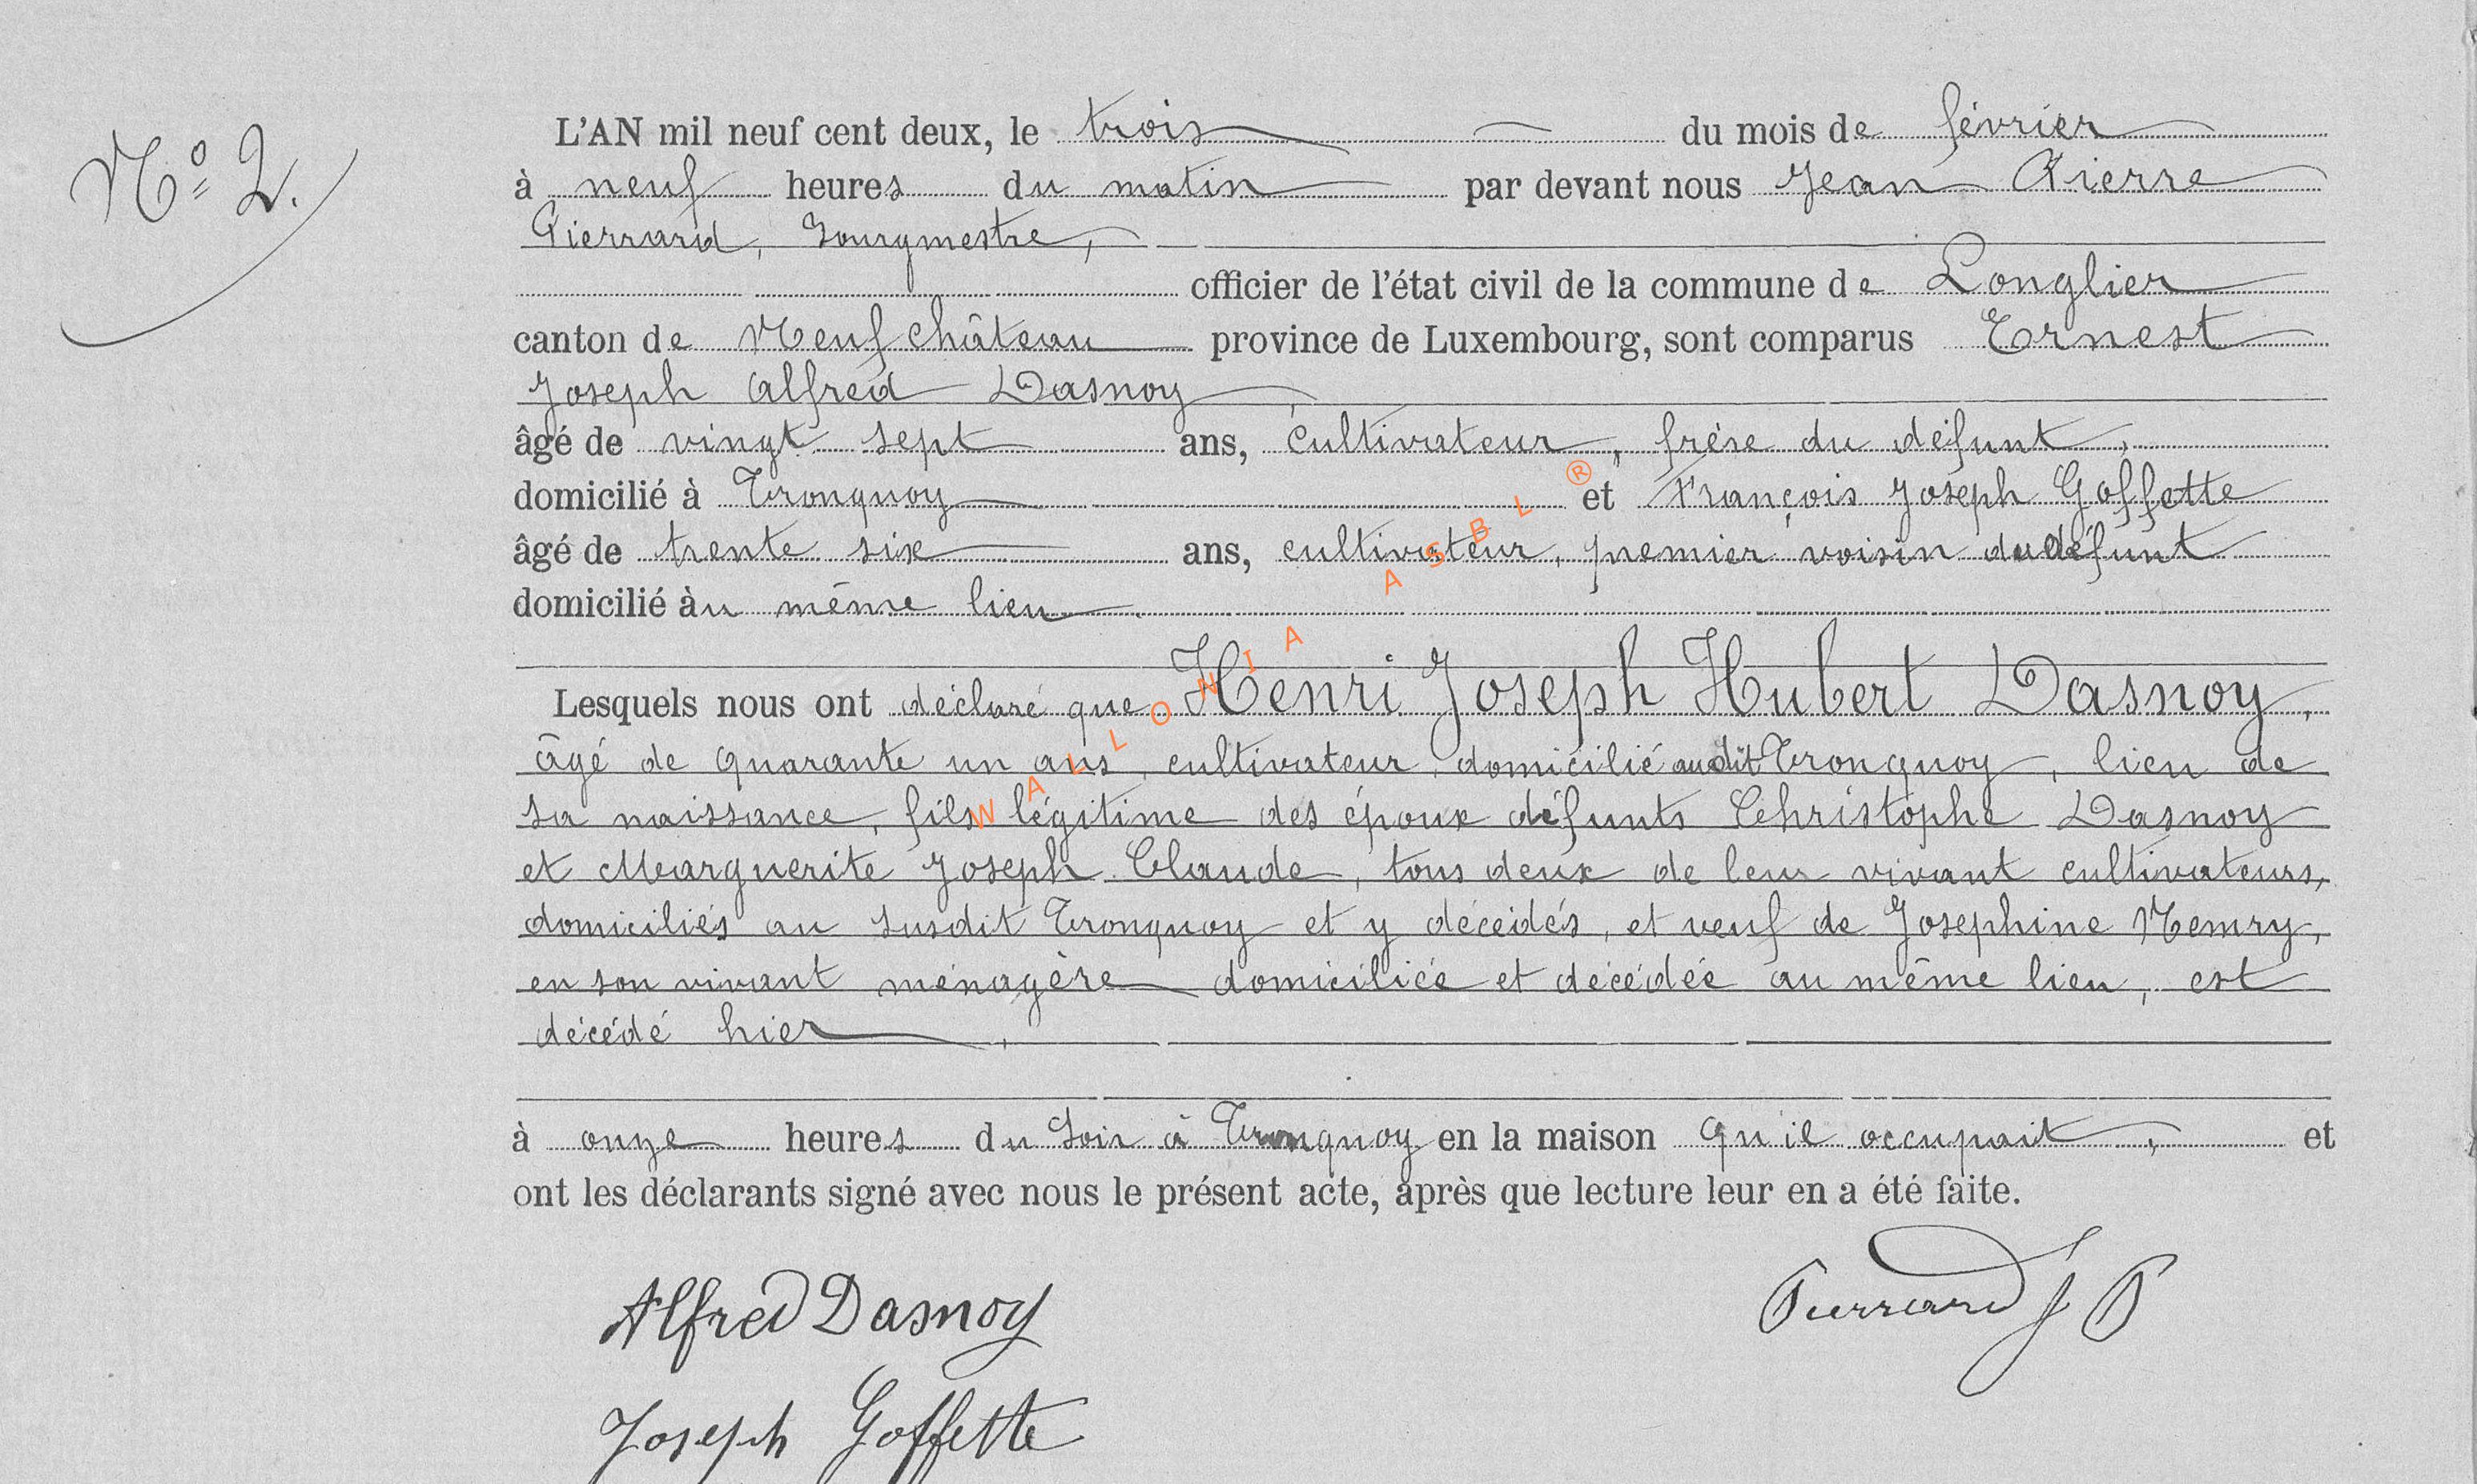 N° 2.
L'AN mil neuf cent deux, le trois du mois de février
à neuf heures du matin par devant nous Jean Pierre
Pierrard, bourgmestre,
officier de l'état civil de la commune de Longlier
canton de Neufchâteau province de Luxembourg, sont comparus Ernest
Joseph Alfred Dasnoy
âgé de vingt sept ans, cultivateur, frère du défunt,
domicilié à Tronquoy et François Joseph Goffette
âgé de trente six ans, cultivateur, premier voisin du défunt
domicilié au même lieu
Lesquels nous ont déclaré que Henri Joseph Hubert Dasnoy,
âgé de quarante un ans, cultivateur, domicilié audit Tronquoy, lieu de
sa naissance, fils légitime des époux défunts Christophe Dasnoy
et Marguerite Joseph Claude, tous deux de leur vivant cultivateurs,
domiciliés au susdit Tronquoy et y décédés, et veuf de Josephine Nemry,
en son vivant ménagère domiciliée et décédée au même lieu, est
décédé hier,
à onze heures du soir à Tronquoy en la maison qu'il occupait, et
ont les déclarants signé avec nous le présent acte, après que lecture leur en a été faite.
Alfred Dasnoy Pierrard J P
Joseph Goffette
WALLONIA ASBL ®